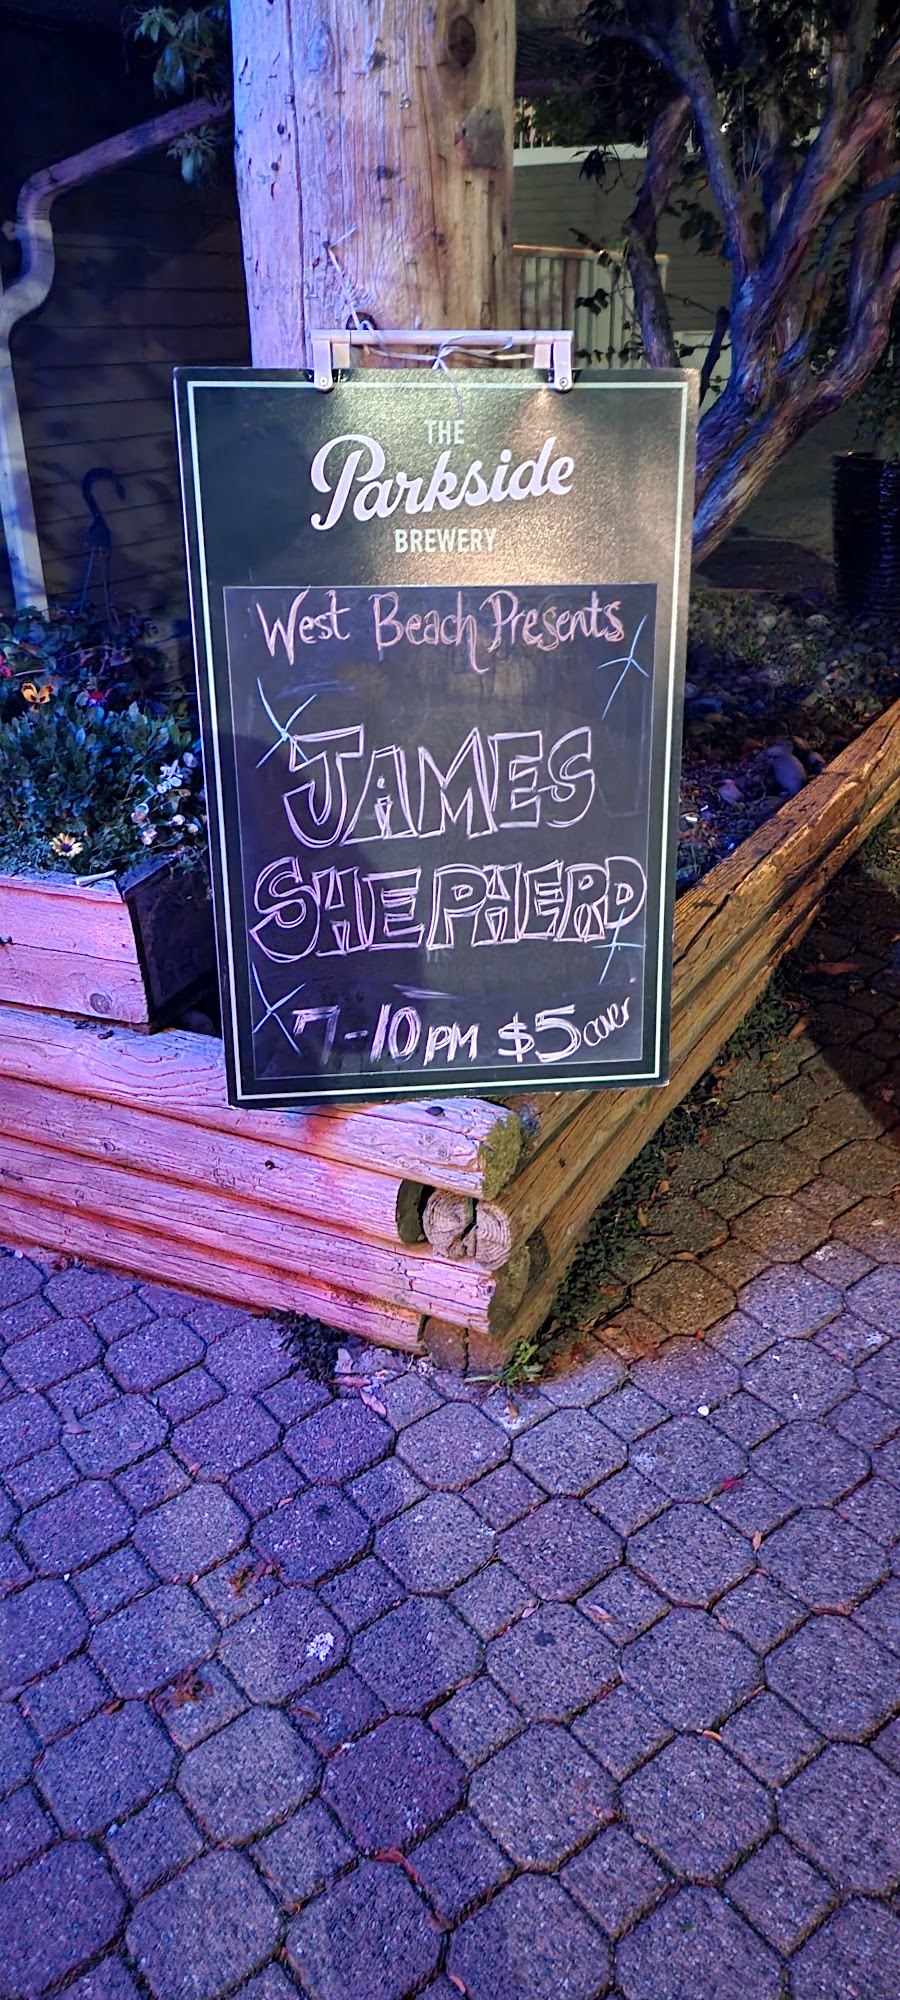 THE
Parkside
BREWERY
West Beach Presents
JAMES
SHEPHERD
7-10PM $5 cover